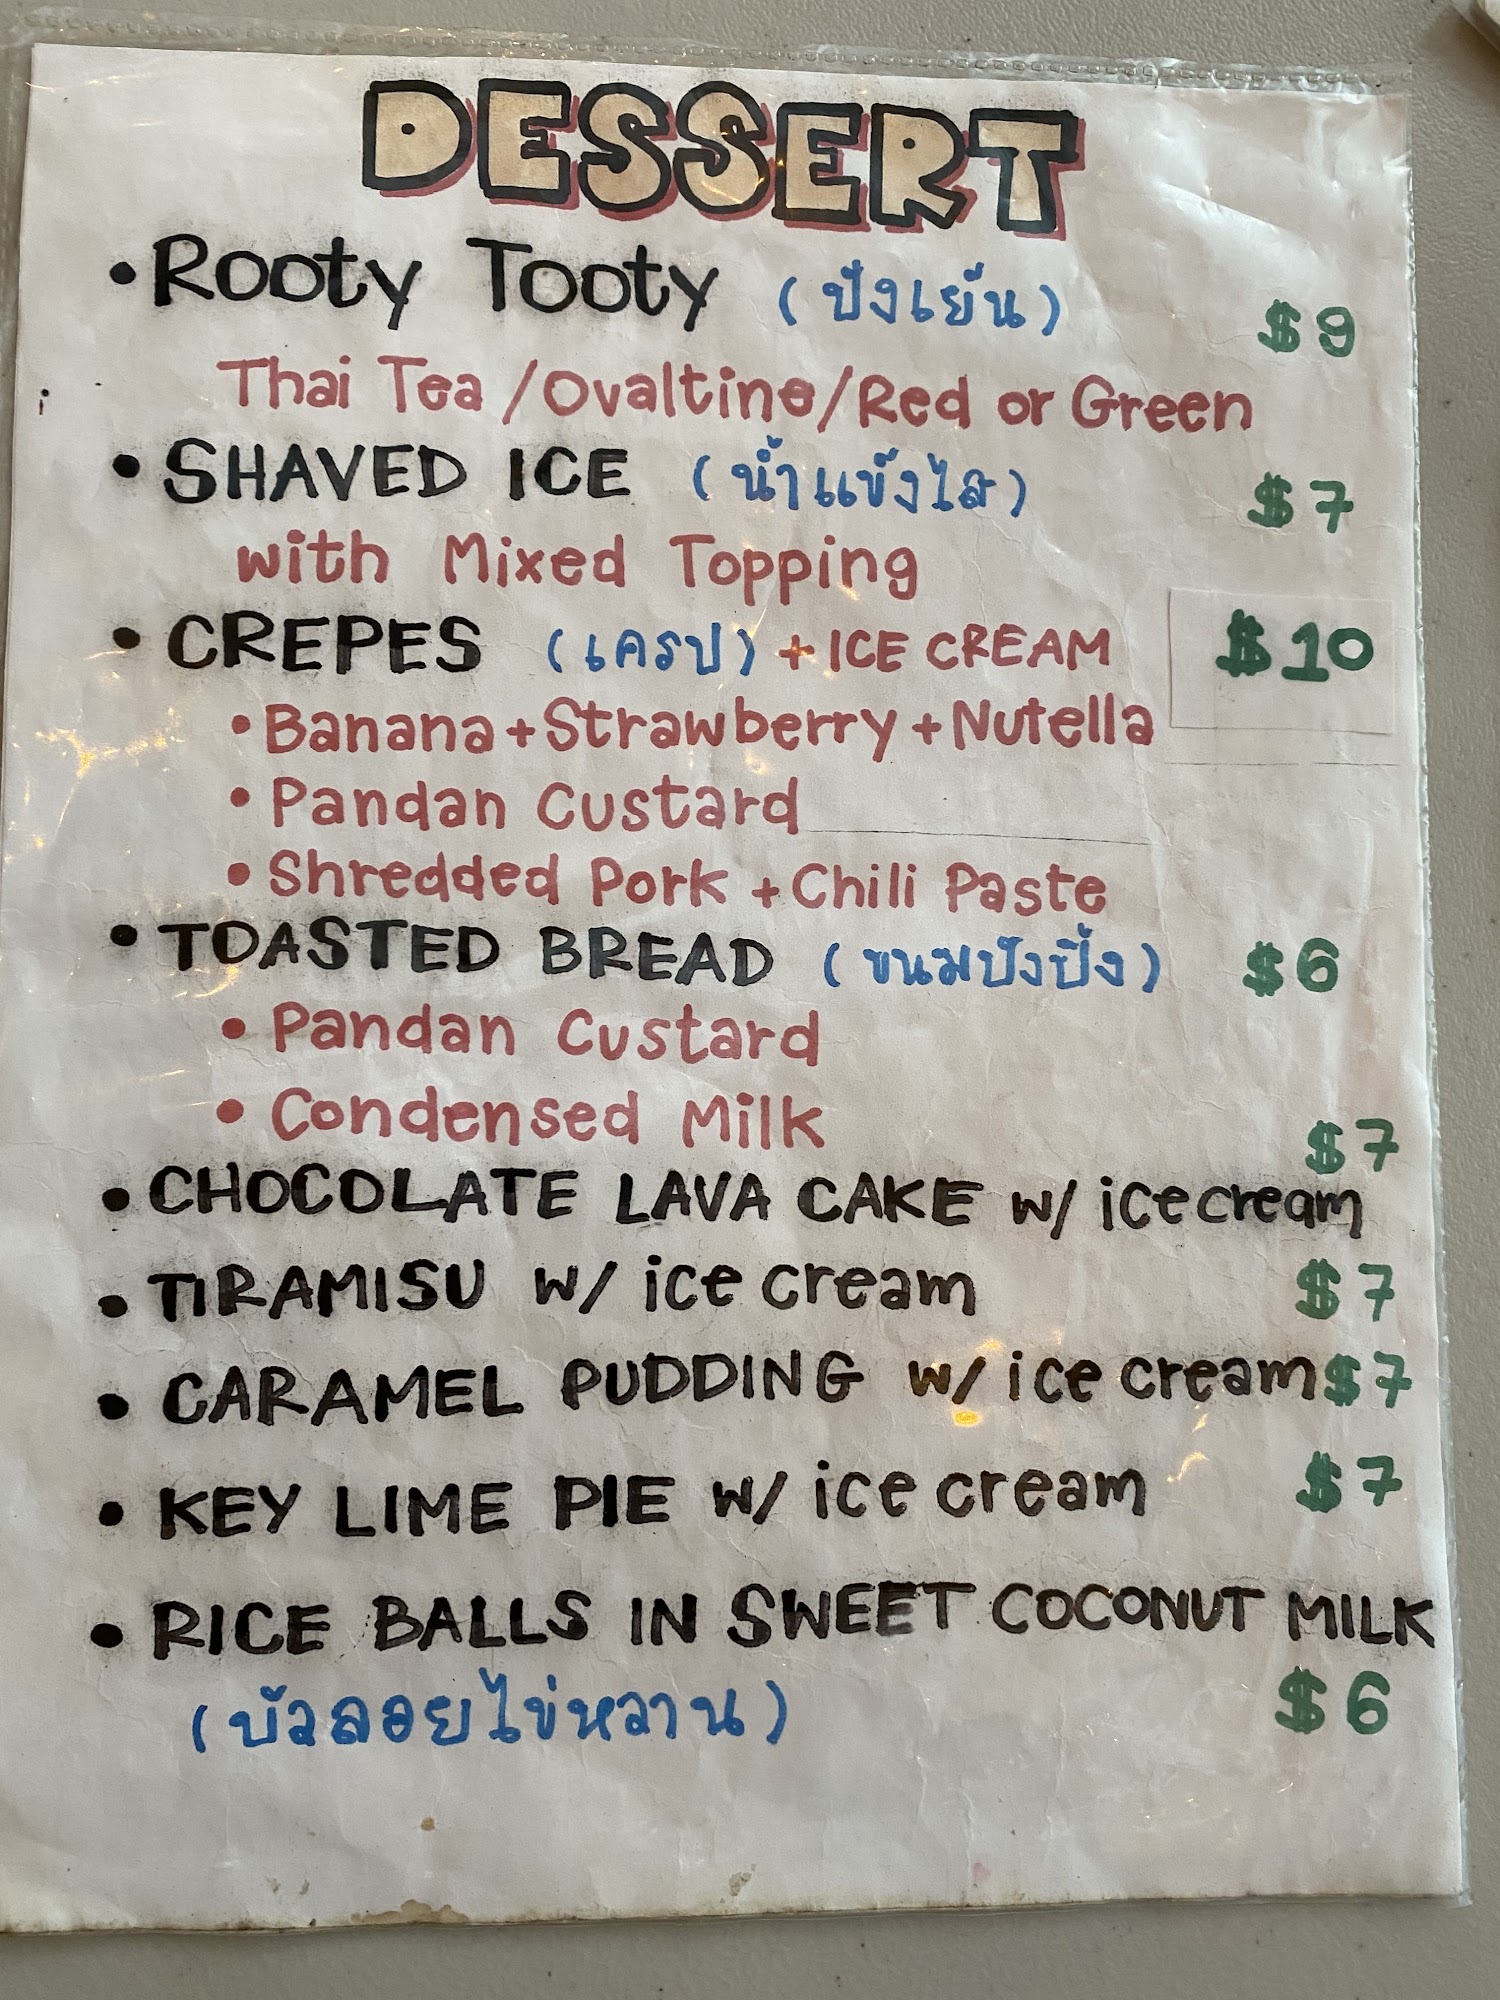 DESSERT
• Rooty Tooty (ปังเย็น) $9
Thai Tea/Ovaltine/Red or Green
• SHAVED ICE (น้ำแข็งไส) $7
with Mixed Topping
• CREPES (เครป) + ICE CREAM $10
• Banana + Strawberry + Nutella
• Pandan Custard
• Shredded Pork + Chili Paste
• TOASTED BREAD (ขนมปังปิ้ง) $6
• Pandan Custard
• Condensed Milk
• CHOCOLATE LAVA CAKE w/ ice cream $7
• TIRAMISU w/ ice cream $7
• CARAMEL PUDDING w/ ice cream $7
• KEY LIME PIE w/ ice cream $7
• RICE BALLS IN SWEET COCONUT MILK
(บัวลอยไข่หวาน) $6